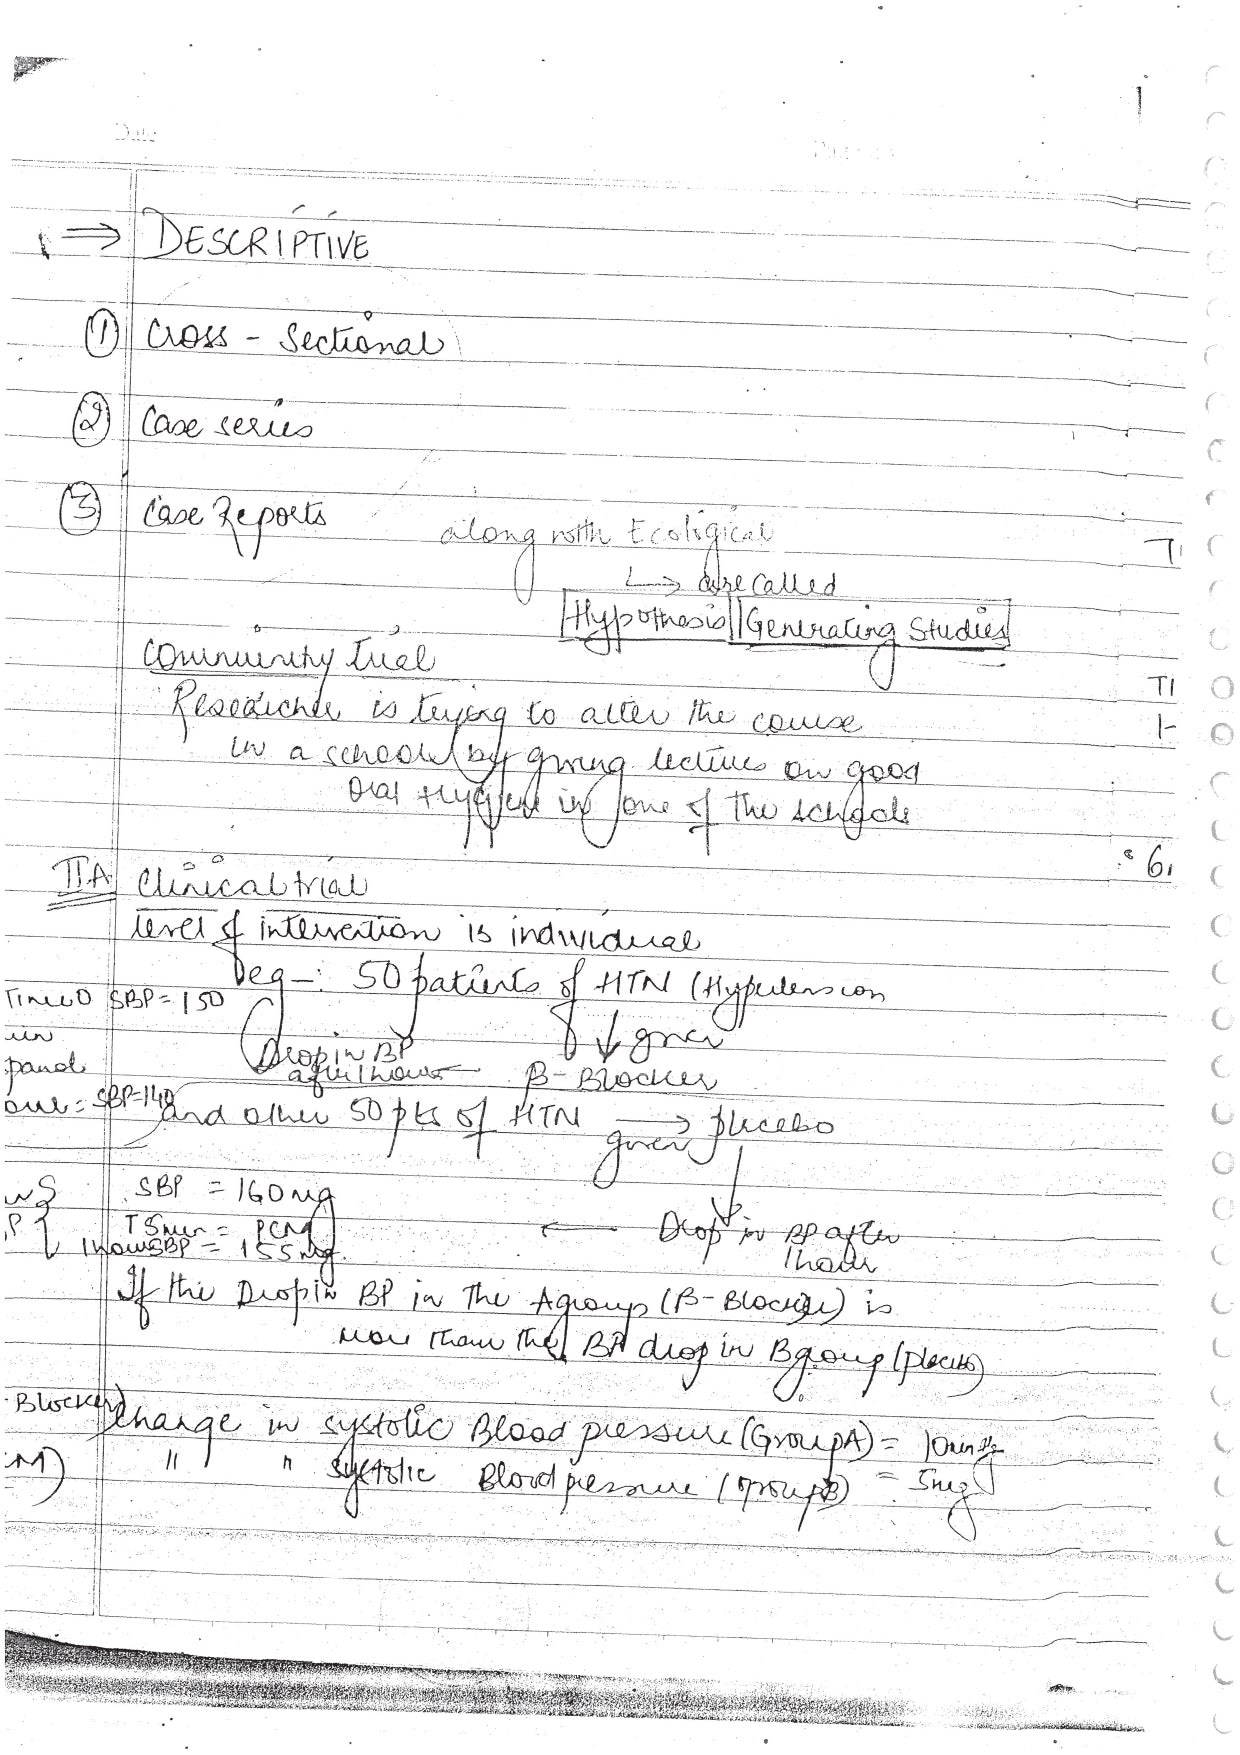 1
⇒ DESCRIPTIVE
① Cross - Sectional
② Case series
③ Case Reports
along with Ecological
↳ are called
Hypothesis Generating Studies
Community trial
Researcher is trying to alter the course
in a school by giving lectures on good
Oral Hygiene in one of the schools
6
IIA Clinical trial
level of intervention is individual
eg -: 50 patients of HTN (Hypertension
Time 0 SBP = 150
↓ given
Drop in BP
after 1 hour
B-Blocker
SBP=140
and other 50 pts of HTN → placebo
given
SBP = 160mg
← Drop in BP after
1 hour
1 hour SBP = 155mg
If the Drop in BP in the A group (B-Blocker) is
more than the BP drop in B group (placebo)
Blocker)
Change in systolic Blood pressure (Group A) = 10mmHg
" " systolic Blood pressure (Group B) = 5mg